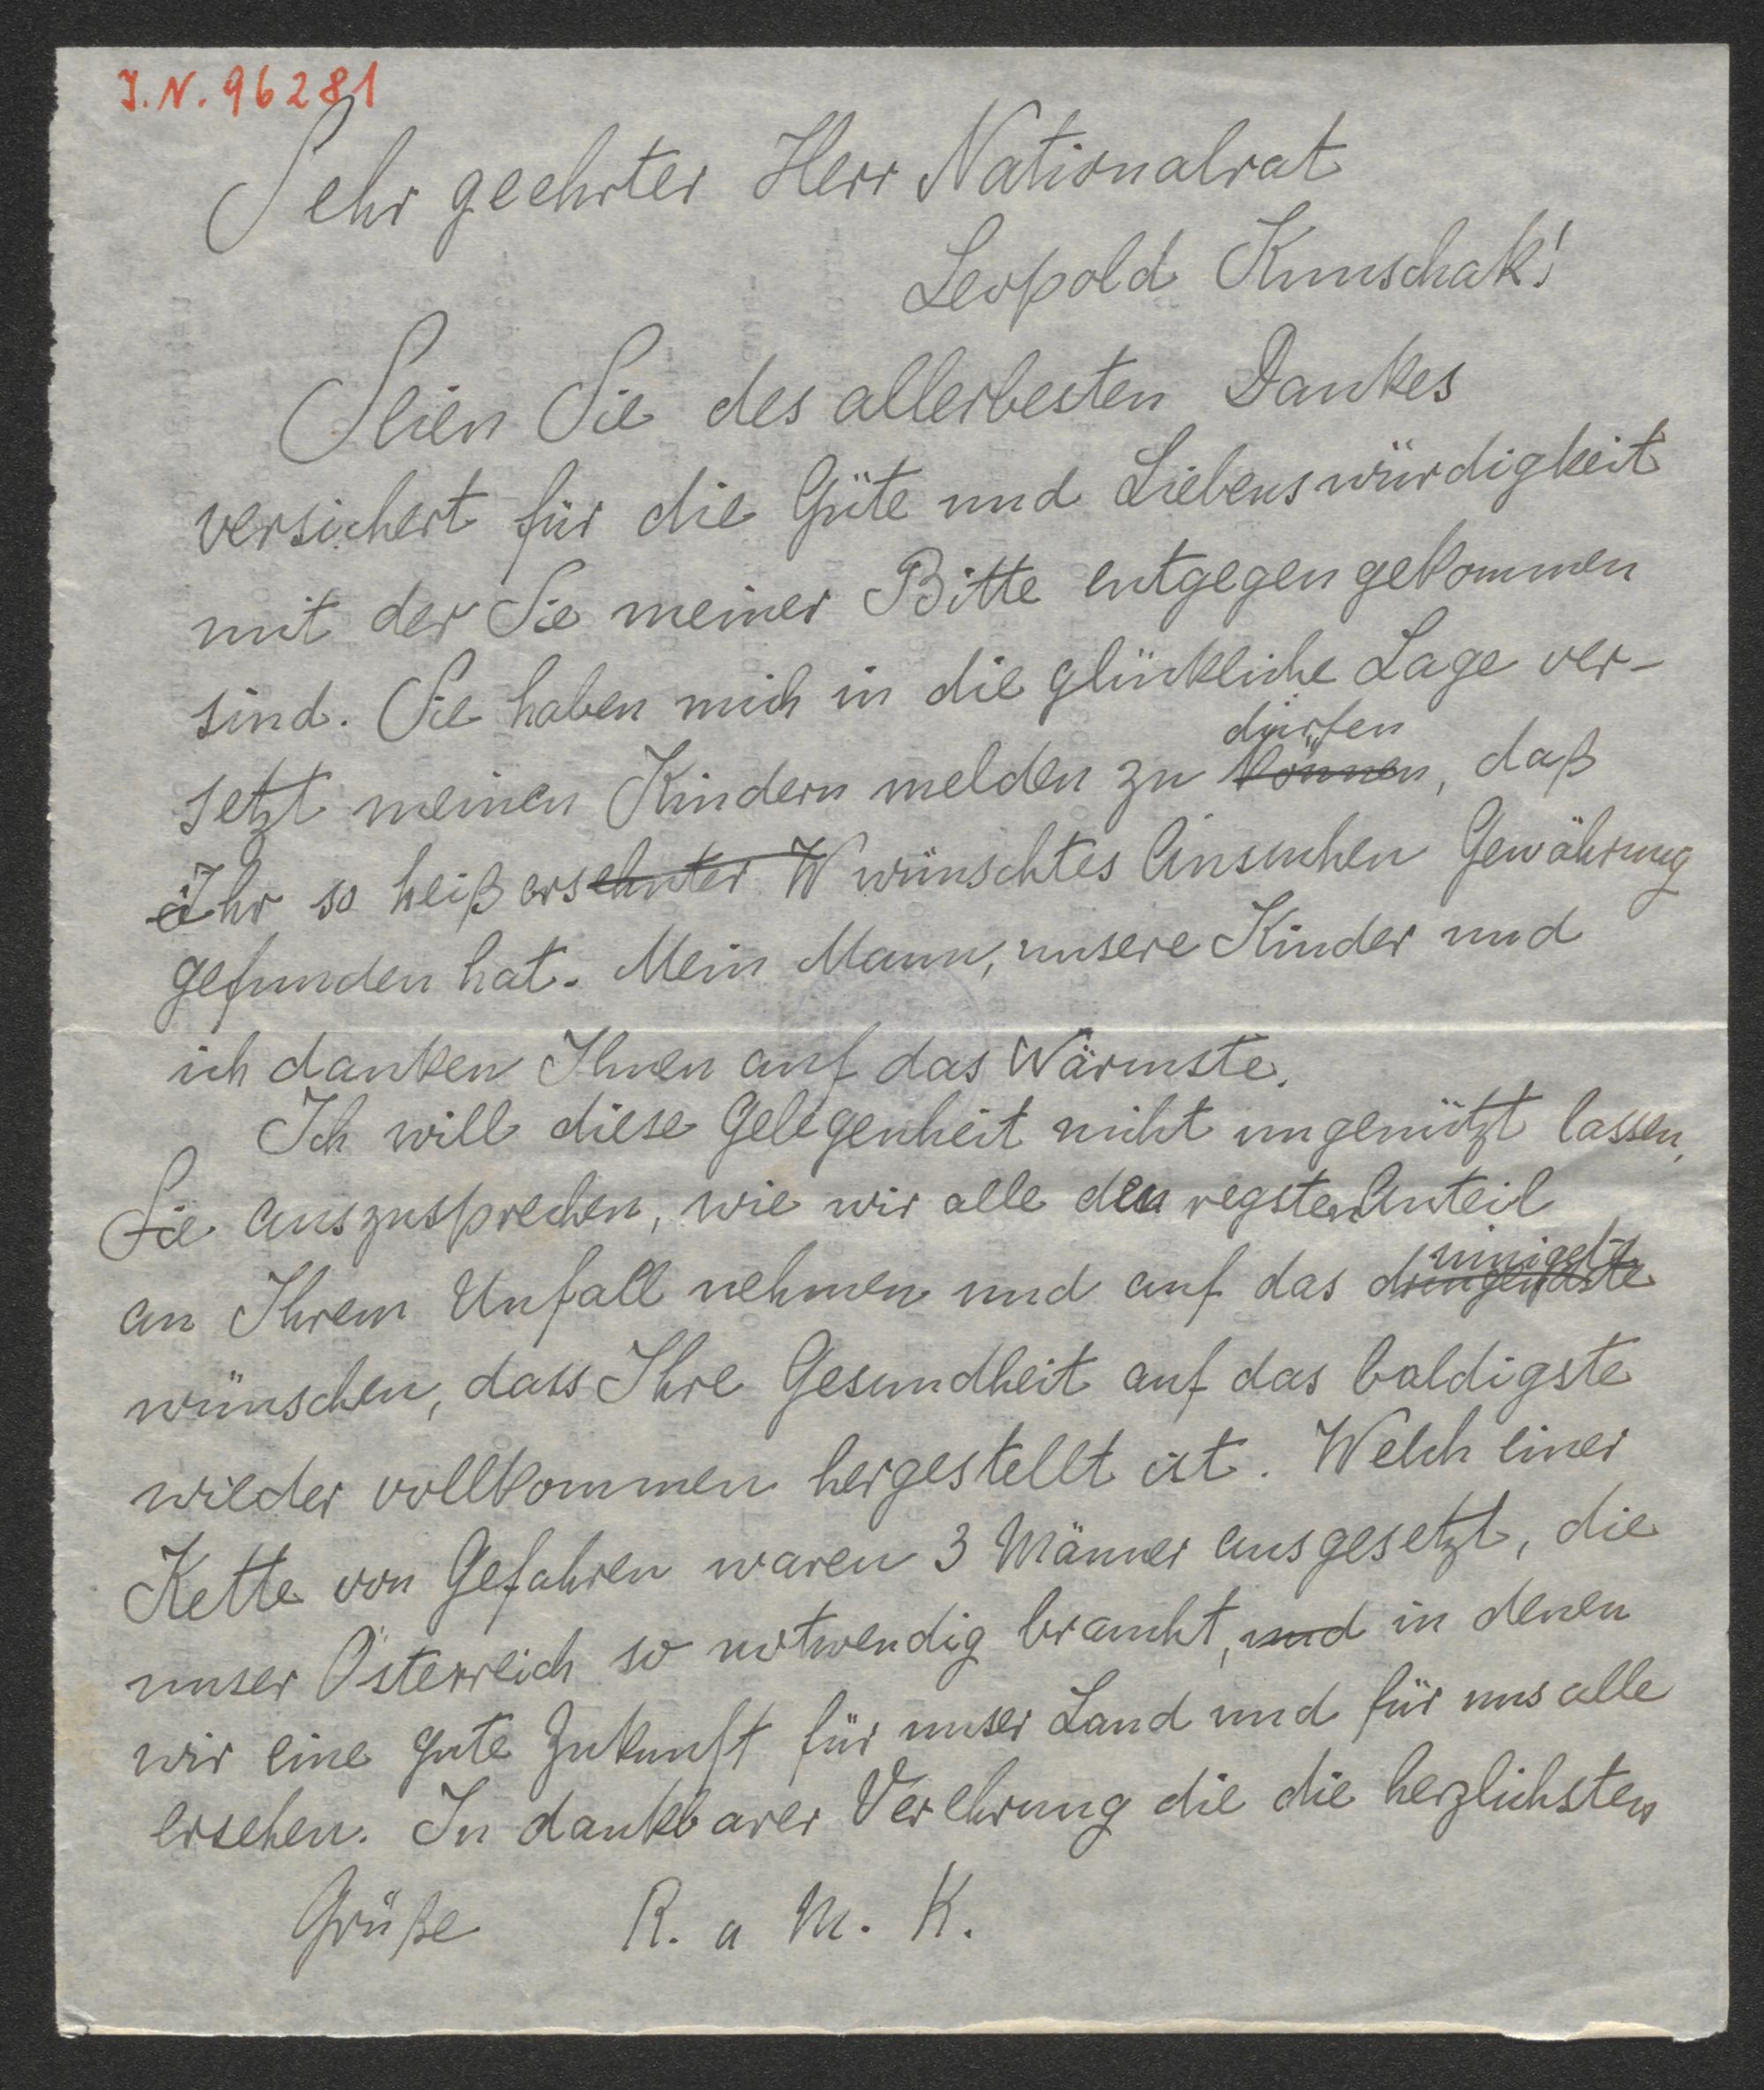 I.N. 96281
Sehr geehrter Herr Nationalrat
Leopold Kunschak!
Seien Sie des allerbesten Dankes
versichert für die Güte und Liebenswürdigkeit
mit der Sie meiner Bitte entgegengekommen
sind. Sie haben mich in die glückliche Lage ver-
dürfen
setzt meinen Kindern melden zu können, daß
Ihr so heiß ersehnter W wünschtes Ansuchen Gewährung
gefunden hat. Mein Mann, unsere Kinder und
ich danken Ihnen auf das Wärmste.
Ich will diese Gelegenheit nicht ungenützt lassen,
Sie auszusprechen, wie wir alle den regsten Anteil
innigste
an Ihrem Unfall nehmen und auf das dringendste
wünschen, dass Ihre Gesundheit auf das baldigste
wieder vollkommen hergestellt ist. Welch einer
Kette von Gefahren waren 3 Männer ausgesetzt, die
unser Österreich so notwendig braucht, und in denen
wir eine gute Zukunft für unser Land und für uns alle
ersehen. In dankbarer Verehrung die die herzlichsten
Grüße R. a M. K.